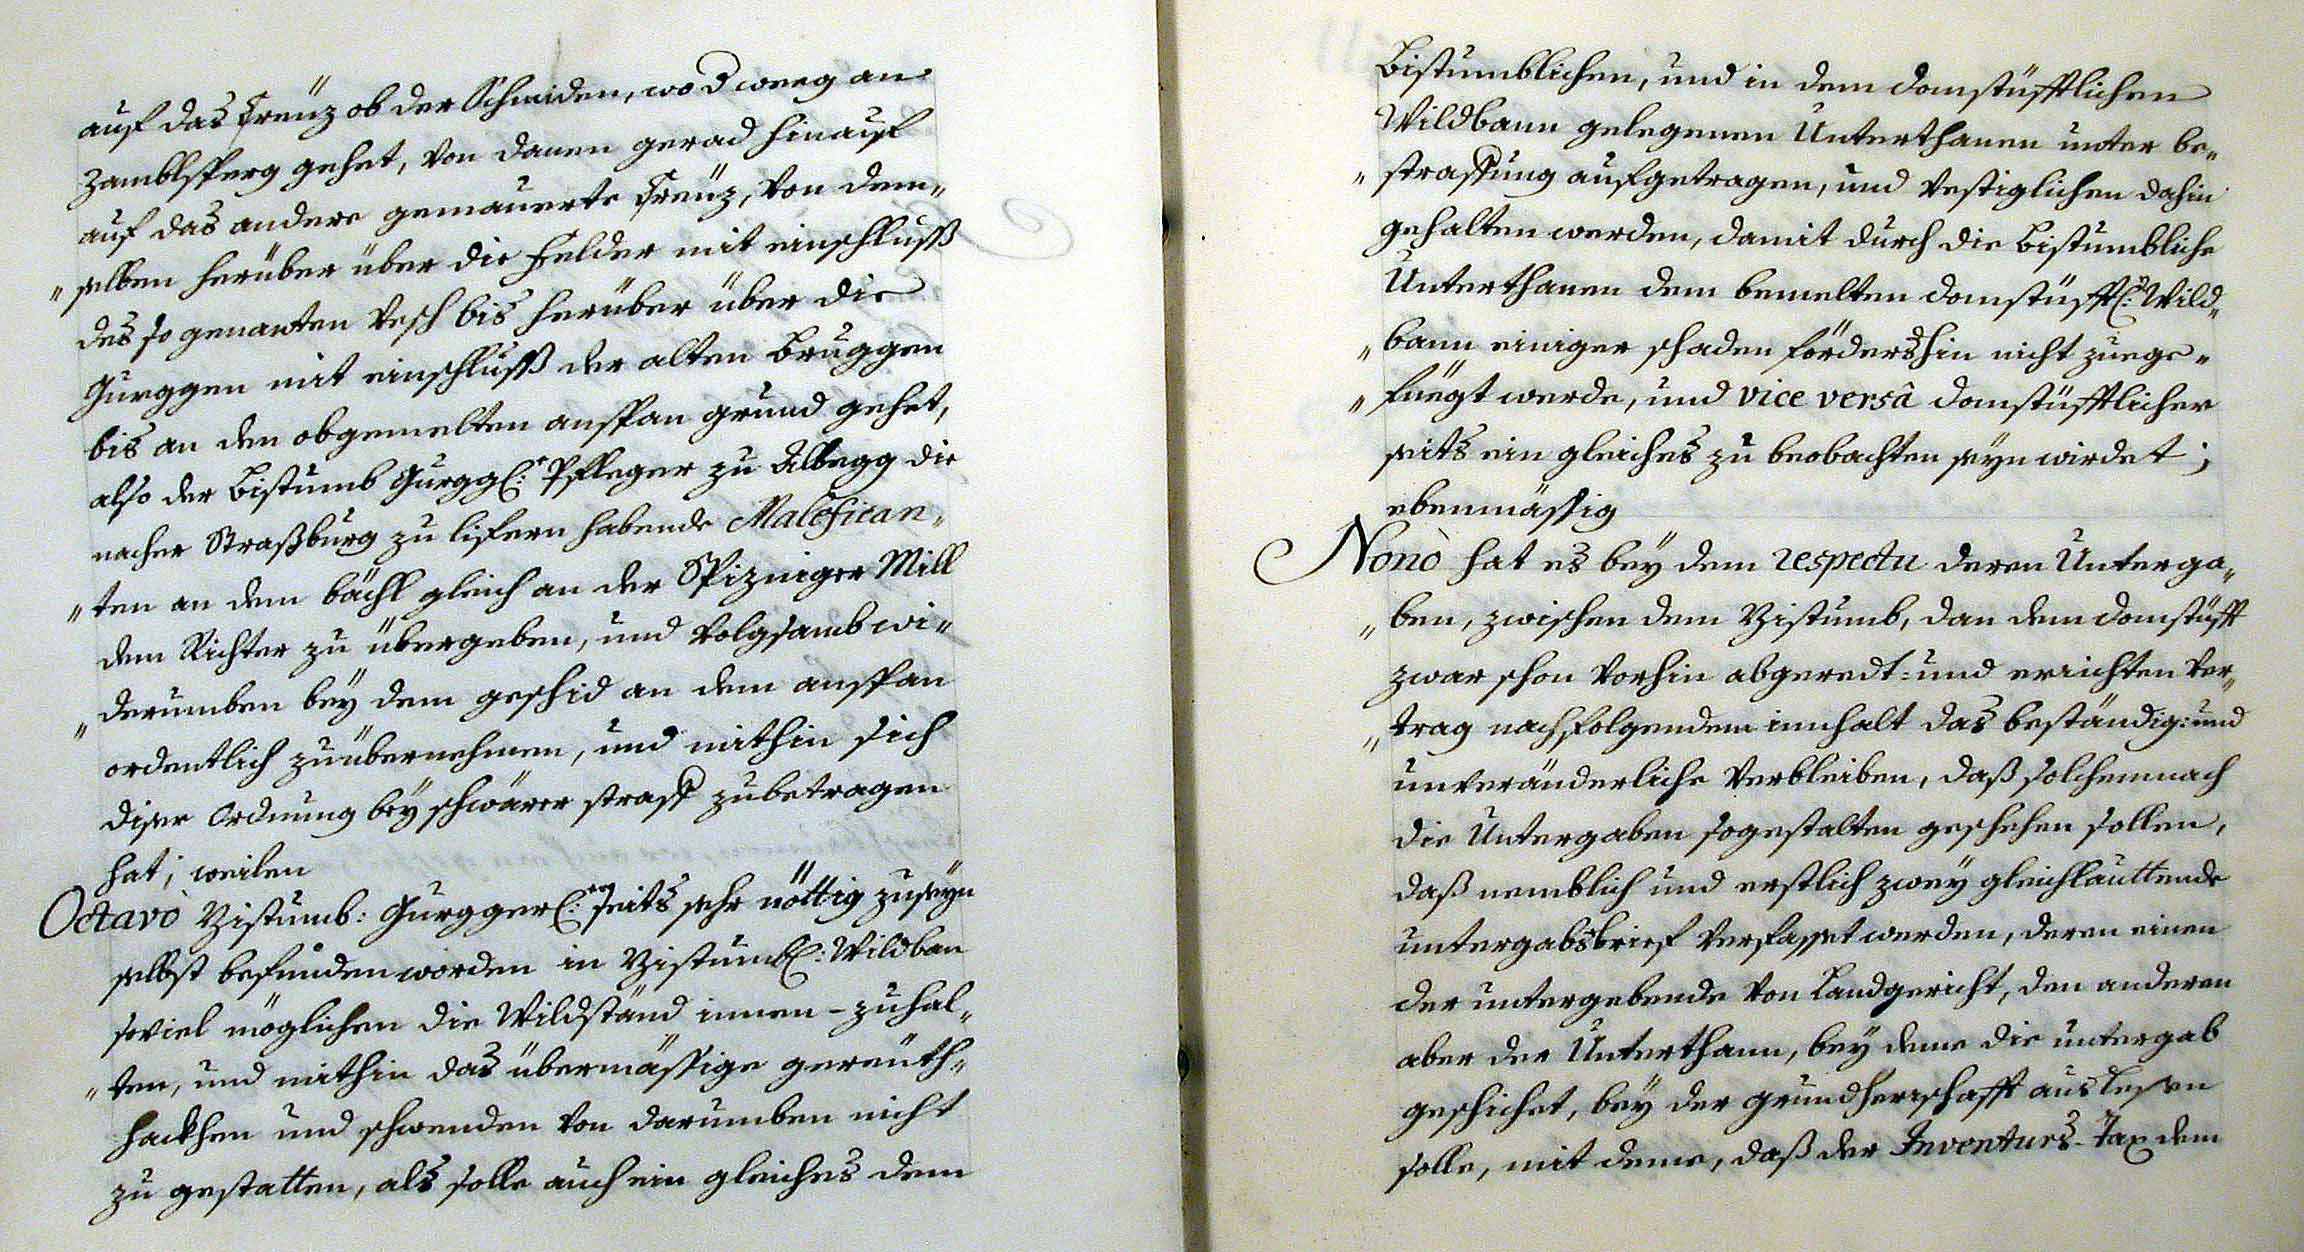 auf das Creüz ob der Schmiden, wo d weeg an
Zamblsperg gehet, von danen gerad hinauf
auf das andere gemauerte Creüz, von dem„
„selben herüber über die Felder mit einschluss
des so genanten Vesch bis herüber über die
Gurggen mit einschluss der alten Bruggen
bis an den obgemelten anspan grund gehet,
also der Bistumb Gurggl: Pfleger zu Albegg die
nacher Straßburg zu lifern habende Malefican„
„ten an dem bächl gleich an der Spizniger Mill
dem Richter zu übergeben, und volgsamb wi„
„derumben bey dem geschid an dem anspan
ordentlich zuübernehmen, und mithin sich
diser Ordnung bey schwärer straff zubetragen
hat; weilen
Octavò Bistumb: Gurggerl: seits sehr nöttig zuseyn
selbst befunden worden in Bistumbl: Wildban
soviel möglichen die Wildständ innen-zuhal„
„ten, und mithin das übermässige gereüth„
hackhen und schwenden von darumben nicht
zu gestatten, als solle auch ein gleiches dem
Bistumblichen, und in dem domstüfftlichen
Wildbann gelegenen Unterthanen unter be„
„straffung aufgetragen, und vestiglichen dahin
gehalten werden, damit durch die Bistumbliche
Unterthanen dem bemelten domstüfftl: Wild„
„bann einiger schaden fördershin nicht zuege„
„füegt werde, und vice versâ domstüfftlicher
seits ein gleiches zu beobachten seyn wirdet;
ebenmässig
Nonò hat es bey dem respectu deren Unterga„
„ben, zwischen dem Bistumb, dan dem domstüfft
zwar schon vorhin abgeredt: und erichten ver„
„trag nachfolgendem innhalt das beständig: und
unveränderliche Verbleiben, daß solchemnach
die Untergaben sogestalten geschehen sollen,
daß nemblich und erstlich zwey gleichlauttende
untergabsbrief verfasset werden, deren einen
der untergebende von Landgericht, den anderen
aber der Unterthann, bey deme die untergab
geschichet, bey der grundherrschafft auslesen
solle, mit deme, daß der Inventurs-Tax dem